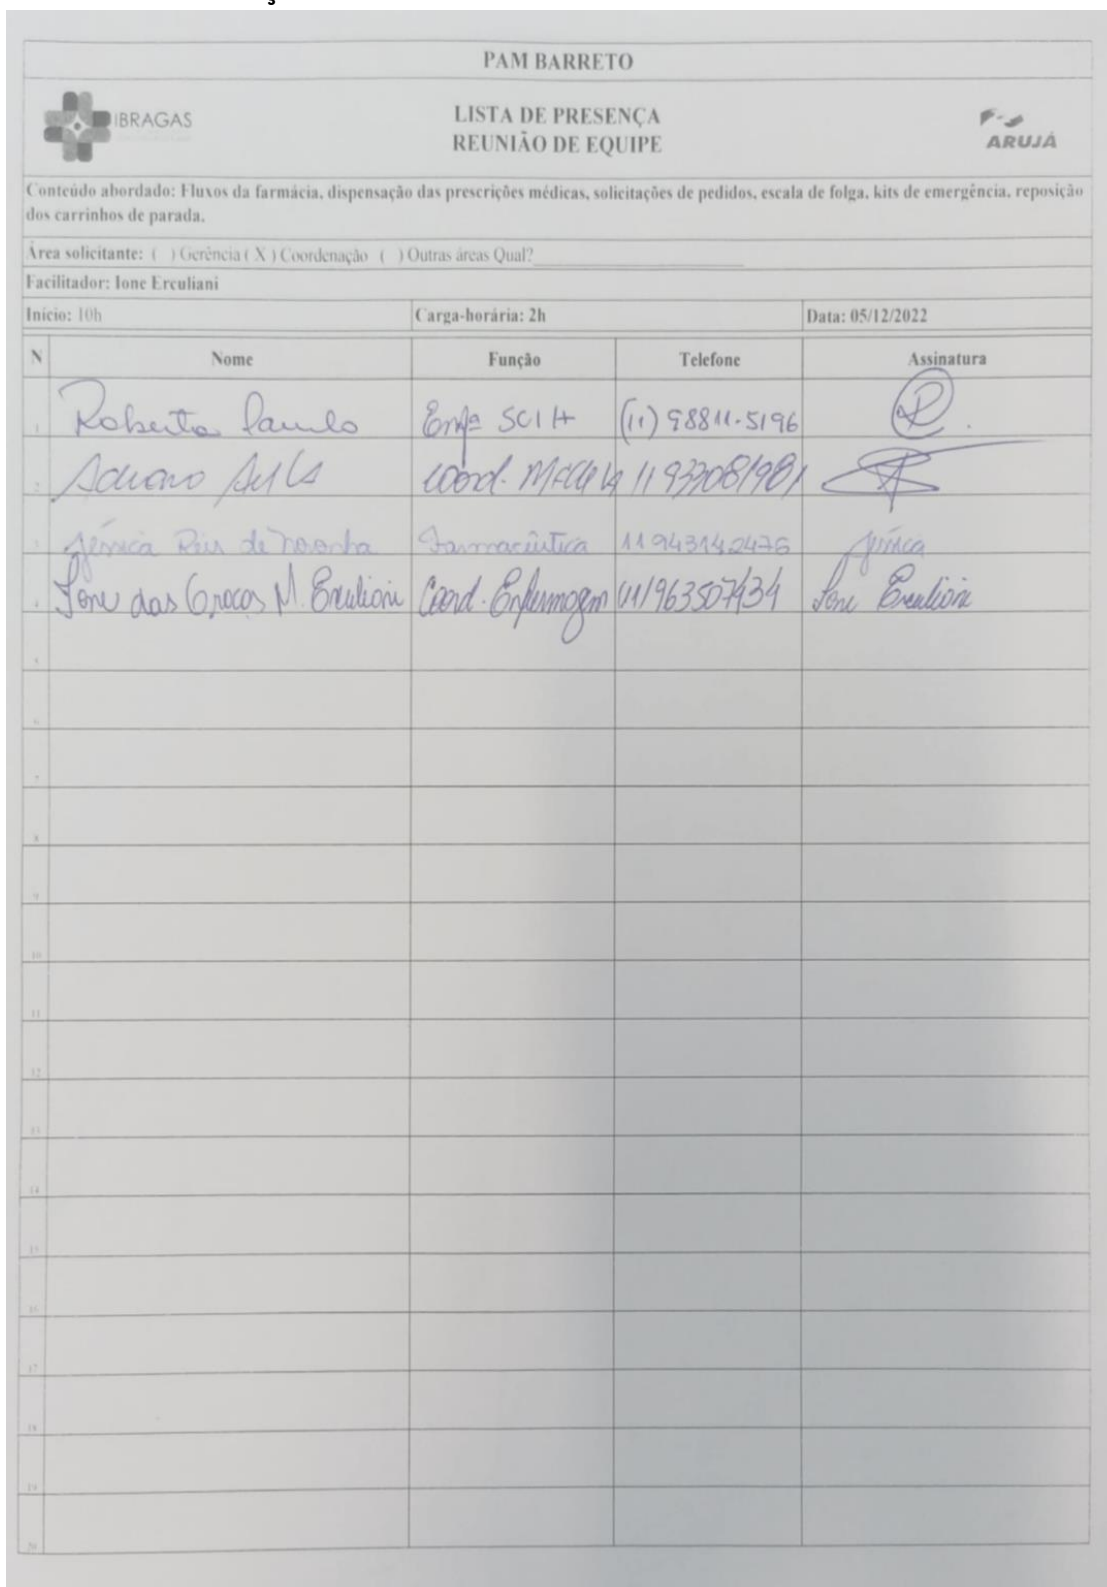 PAM BARRETO
IBRAGAS
LISTA DE PRESENÇA
REUNIÃO DE EQUIPE
ARUJÁ
Conteúdo abordado: Fluxos da farmácia, dispensação das prescrições médicas, solicitações de pedidos, escala de folga, kits de emergência, reposição
dos carrinhos de parada.
Área solicitante: ( ) Gerência ( X ) Coordenação ( ) Outras áreas Qual?
Facilitador: Ione Erculiani
Início: 10h Carga-horária: 2h Data: 05/12/2022
N Nome Função Telefone Assinatura
1 Roberta Paulo Enfª SCIH (11) 98811-5196
2 Adriano Coord.
3 Jéssica Reis de Noronha Farmacêutica 11943142476 Jéssica
4 Ione das Graças M. Erculiani Coord. Enfermagem (11) 963507434 Ione Erculiani
5
6
7
8
9
10
11
12
13
14
15
17
18
19
20